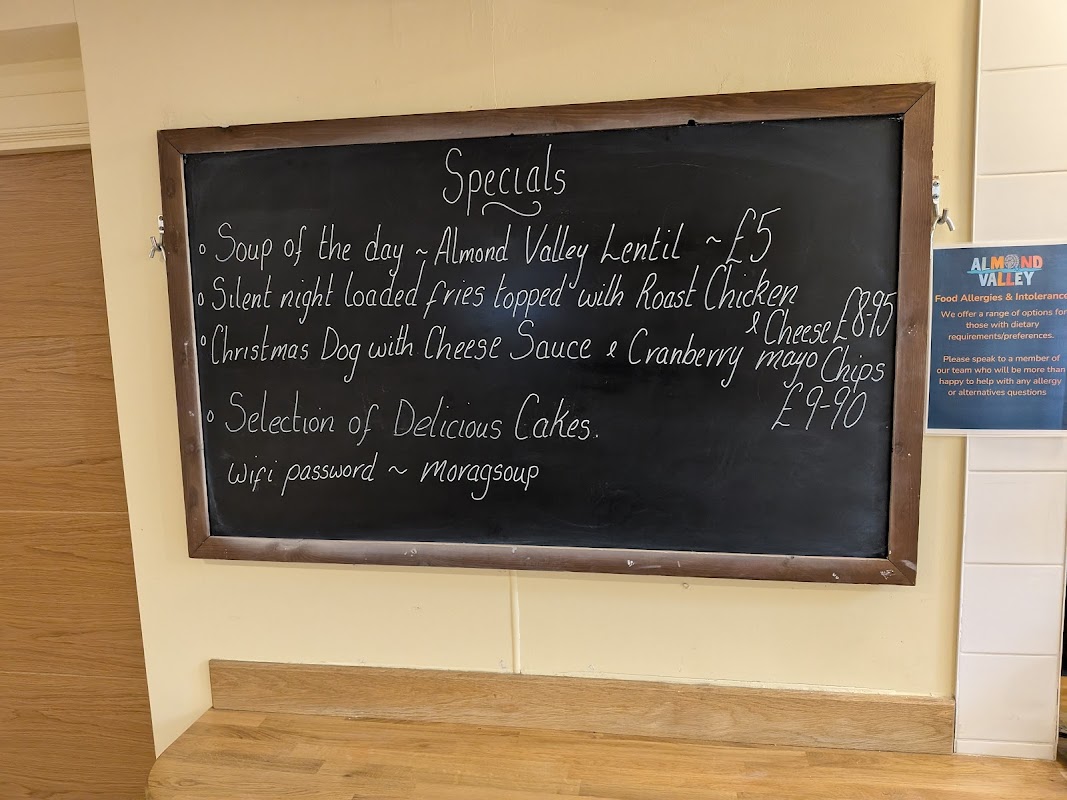 Specials
Soup of the day ~ Almond Valley Lentil ~ £5
Silent night loaded fries topped with Roast Chicken
& Cheese £8-95
Christmas Dog with Cheese Sauce & Cranberry mayo Chips
£9-90
Selection of Delicious Cakes.
wifi password ~ moragsoup
ALMOND
VALLEY
Food Allergies & Intolerance
We offer a range of options for
those with dietary
requirements/preferences.
Please speak to a member of
our team who will be more than
happy to help with any allergy
or alternatives questions